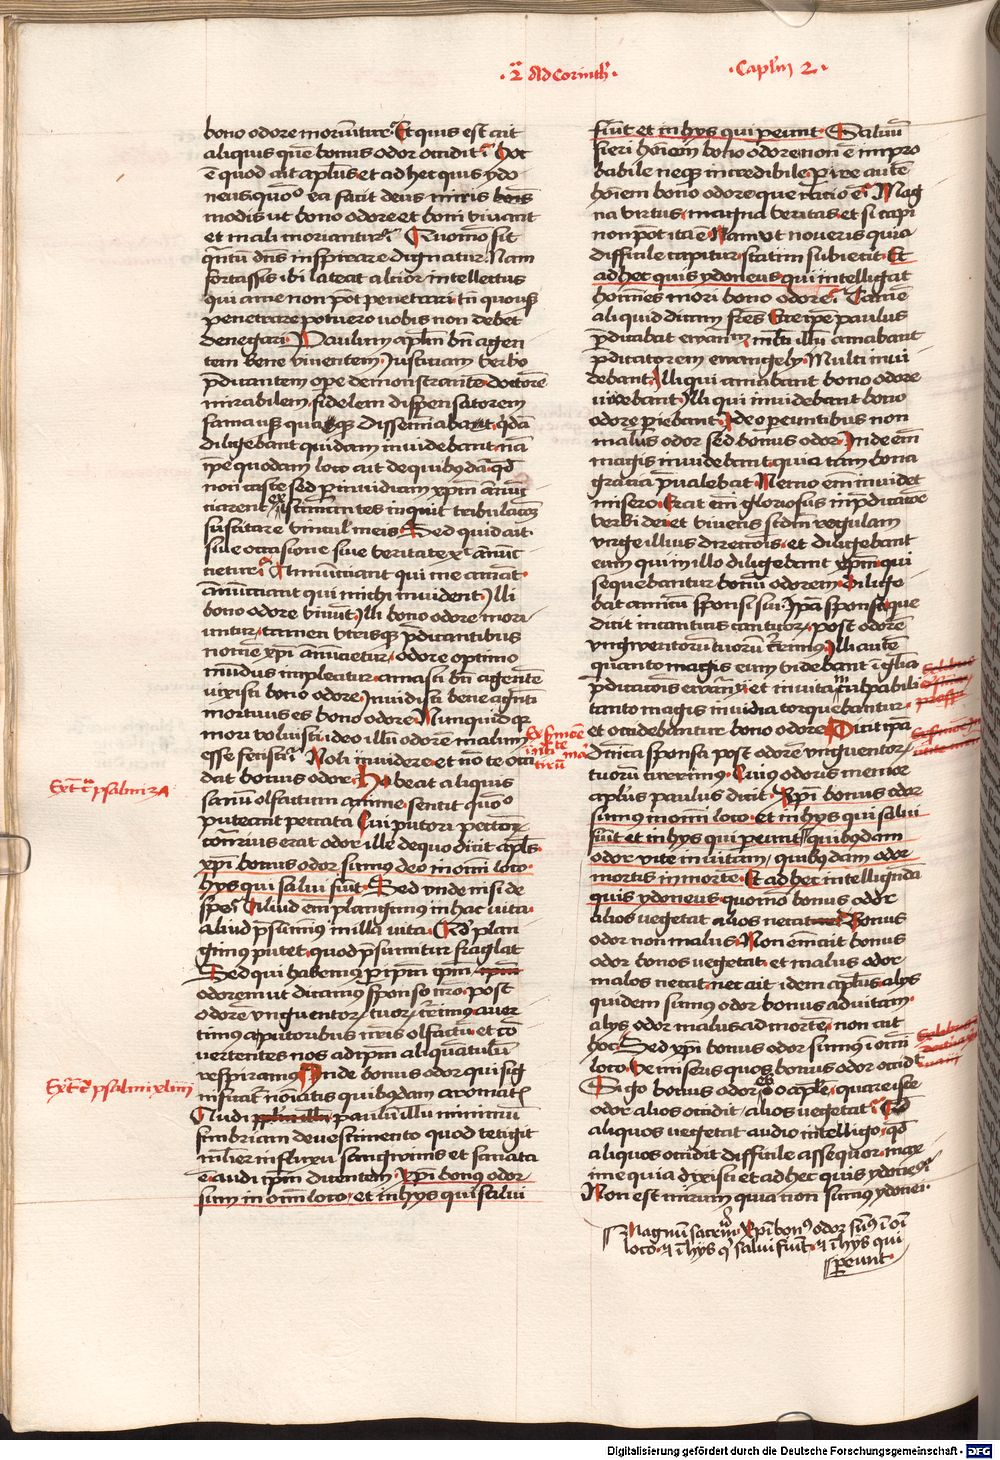 ·2ᵃ Ad Corinth̄·
·Caplm̄ 2·
bono odore moriuntur Et quis est ait
aliquis quē bonus odor occidit Hoc
ē quod ait apl̄us et ad hec quis ydo
neus quōo ea facit deus miris
modis ut bono odore et boni vivant
et mali moriantur Quomō sit
qn̄tū dn̄s inspirare dignatur Nam
fortassis ibi lateat altior intellectus
qui a me non pōt penetrari tn̄ quousq̨
penetrare potuero vobis non debet
denegari Paulum apl̄m bn̄ agen
tem bene viventem Iusticiam verbo
p̄dicantem ope demonstrantē doctorē
mirabilem fidelem dispensatorem
fama usq̨ quaq̨ dissemīabat q̄dā
diligebant quidam invidebant nā
ip̄e quodam loco ait de quibꝯdā qd̄
non caste sed p invidiam xp̄m annūc
ciarent existimantes inquit tribulacōꝫ
suscitare vinculis meis Sed quid ait
siue occasione siue veritate xͨ annūc
cietur Annūcciant qui me amant
annūcciant qui michi invident Illi
bono odore vivūt Illi bono odore mori
untur tamen utrisq̨ p̄dicantibus
nomē xp̄i annūcietur odore optimo
mūdus impleatur amasti bn̄ agentē
vixisti bono odore Invidisti bene agēti
mortuus es bono odore Nunquid q̨
mori voluisti ideo illū odorem malum
esse fecisti Noli invidere et no te occi
dat bonus odor Habeat aliquis
sanū olfactum anime sentit quōo
puteant peccata Cui putori pcc̄torꝫ
cōtrarius erat odor ille de quo dicit apl̄s
xp̄i bonus odor sumus deo in omi loco
hys qui salui fiūt Sed unde nisi de
spe Aliud em̄ plangimus in hac vita
aliud p̄sumimꝯ in illa vita Qd̄ plan
gimus putet quod p̄sumitur fraglat
Sed qui habemus p ip̄m
odorem ut dicamus sponso nr̄o post
odorē unguentorꝫ tuorꝫ currimꝯ auer
timus a putoribus nr̄is olfactū et cō
vertentes nos ad ip̄m aliquātulū
respiramus Unde bonus odor qui sig
nificatr̄ nominatis quibusdam aromatibꝯ
Audi paulū illū minimū
fimbriam de vestimento quod tetigit
mulier in fluxu sanguinis et sanata
ē audi ip̄m dicentem xp̄i bonꝯ odor
sum in omi loco et in hys qui salui
Ext̄ᵃ c̄ psalmi 2A
Ext̄ᵃ c̄ psalmi xliiii
fiūt et in hys qui peunt Saluū
fieri hoīem bono odore non ē impro
babile neq̨ incredibile pire autē
hoīem bono odore que racio ē Mag
na virtus magna veritas et si capi
non pōt ita ē Nam ut noveris quia
difficile capitur statim subiecit Et
ad hec quis ydoneus qui intelligat
homīes mori bono odore Tamē
aliquid dicam fr̄es Ecce ip̄e paulus
p̄dicabat ewangl̄m m̄lti illū amabant
p̄dicatorem ewangely Multi invi
debant Illi qui amabant bono odore
videbant Illi qui invidebant bono
odore piebant Ideo peuntibus non
malus odor sed bonus odor Inde em̄
magis invidebant quia tam bona
gracia p̄ualebat Nemo em̄ invidet
misero Erat em̄ gloriosus in p̄dicacōe
verbi dei et vivens scdm regulam
virge illius direccōis et diligebant
eum qui in illo diligebant xp̄m qui
sequebantur bonū odorem Dilige
bat amicū sponsi sui Ip̄a sponsa que
dicit in canticis canticorꝫ post odorē
ungwentorū tuorū curremus Illi autē
quanto magis eum videbant ī gl̄ia
p̄dicacōis ewangl̄y et in vita inculpabili
tanto magis invidia torquebantur
et occidebantur bono odore Dicit ip̄a
dn̄ica sponsa post odorē unguentorꝫ
tuorū currimus Cuius odoris memor
apl̄us paulus dicit Xp̄i bonus odor
sumus in omi loco et in hys qui salui
fiūt et in hys qui peunt quibusdam
odor vite in vitam quibꝯdam odor
mortis in morte Et ad hec intelligenda
quis ydoneus quomō bonus odor
alios vegetat alios necat Bonus
odor non malus Non em̄ ait bonus
odor bonos vegetat et malus odor
malos necat nec ait idem apl̄us alys
quidem sumus odor bonus ad vitam
alys odor malus ad mortē non ait
hoc Sed xp̄i bonus odor sumus ī omi
loco Ve miseris quos bonus odor occidit
Si go bonus odor es o aple quare iste
odor alios occidit alios vegetat Qd̄
aliquos vegetat audio intelligo qd̄
aliquos occidit difficile assequor max
ime quia dixisti et ad hec quis ydoneꝯ
Non est mirum quia non sumus ydonei
Magnū sacrm̄ xp̄i bonꝰ odor sumꝰ ī oī
loco et ī hys qi salui fiūt et ī hys qui
peunt